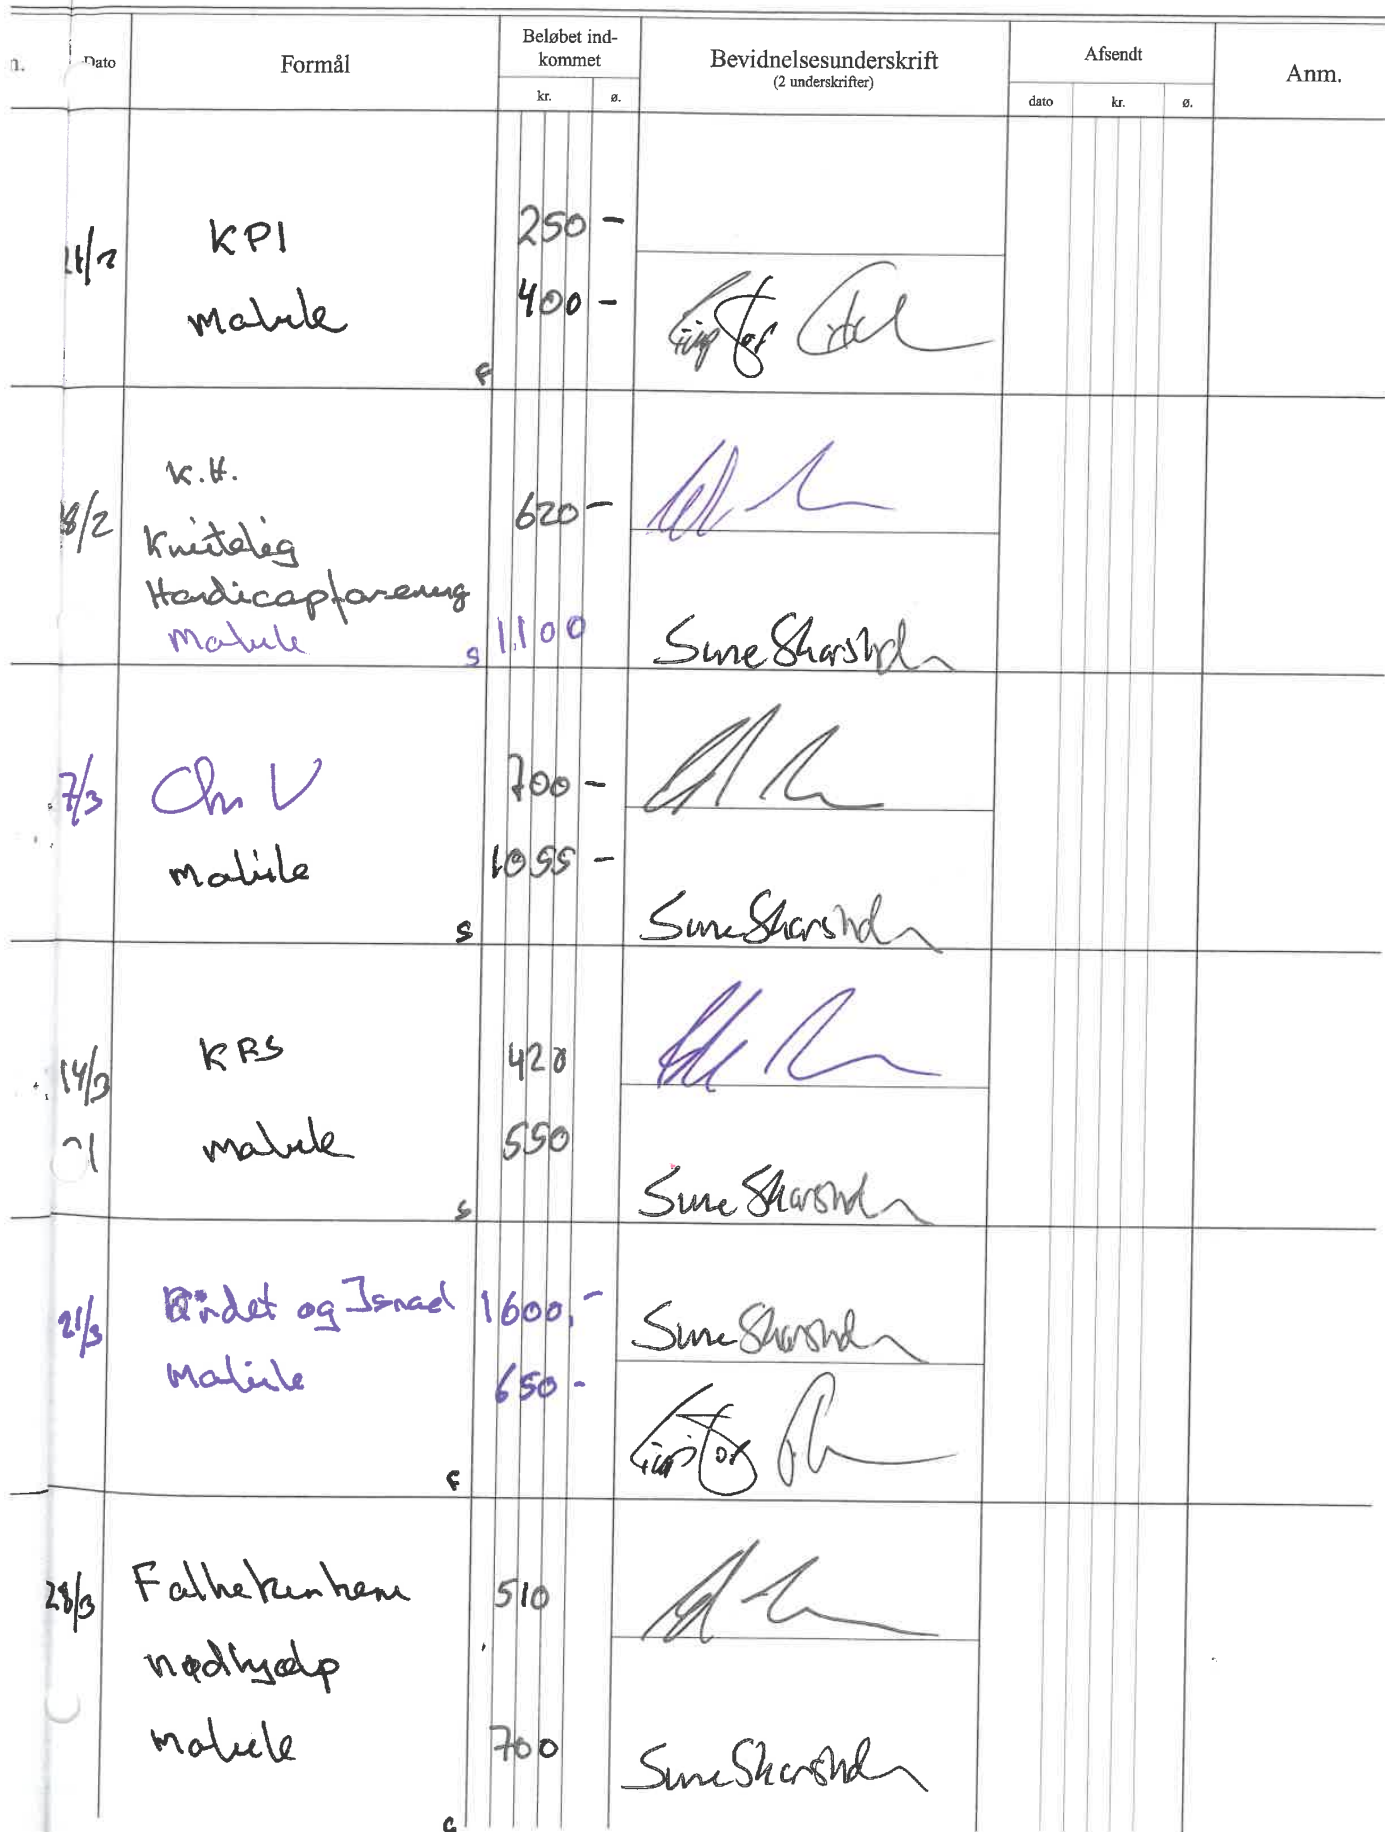 Dato
Formål
Beløbet ind-
kommet
kr. ø.
Bevidnelsesunderskrift
(2 underskrifter)
Afsendt
dato kr. ø.
Anm.
KPI 250 -
mobile 400 -
F
8/2
K.H. 620 -
Kristelig
Handicapforening
mobile 1.100
S
Sune Skarsholm
7/3
Chr V 700 -
mobile 1055 -
S
Sune Skarsholm
14/3
KRS 420
mobile 550
S
Sune Skarsholm
21/3
Ordet og Israel 1600,-
mobile 650 -
Sune Skarsholm
F
28/3
Folkekirkens 510
nødhjælp
mobile 700
Sune Skarsholm